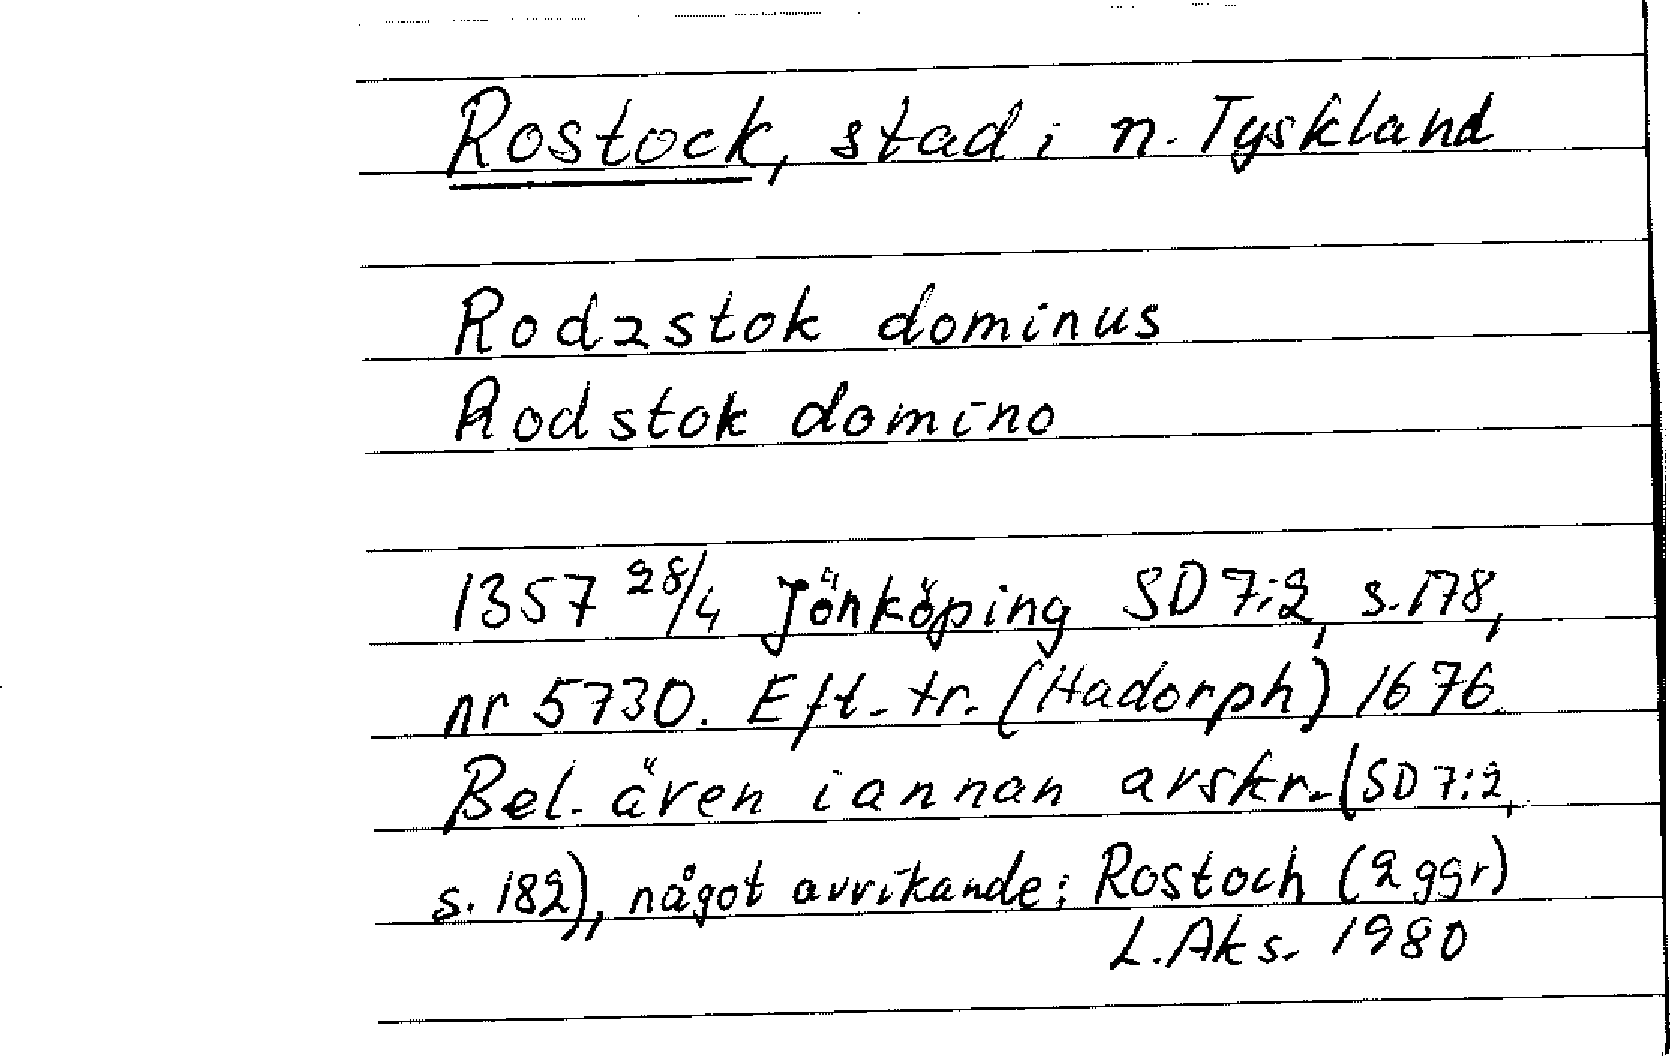 Rostock, stad i n. Tyskland
Rodzstok dominus
Rodstok domino
1357 28/4 Jönköping SD 7:2, s. 178,
nr 5730. Eft. tr. (Hadorph) 1676.
Bel. även i annan avskr. (SD 7:2,
s. 182), något avvikande: Rostoch (2 ggr)
L. Aks. 1980